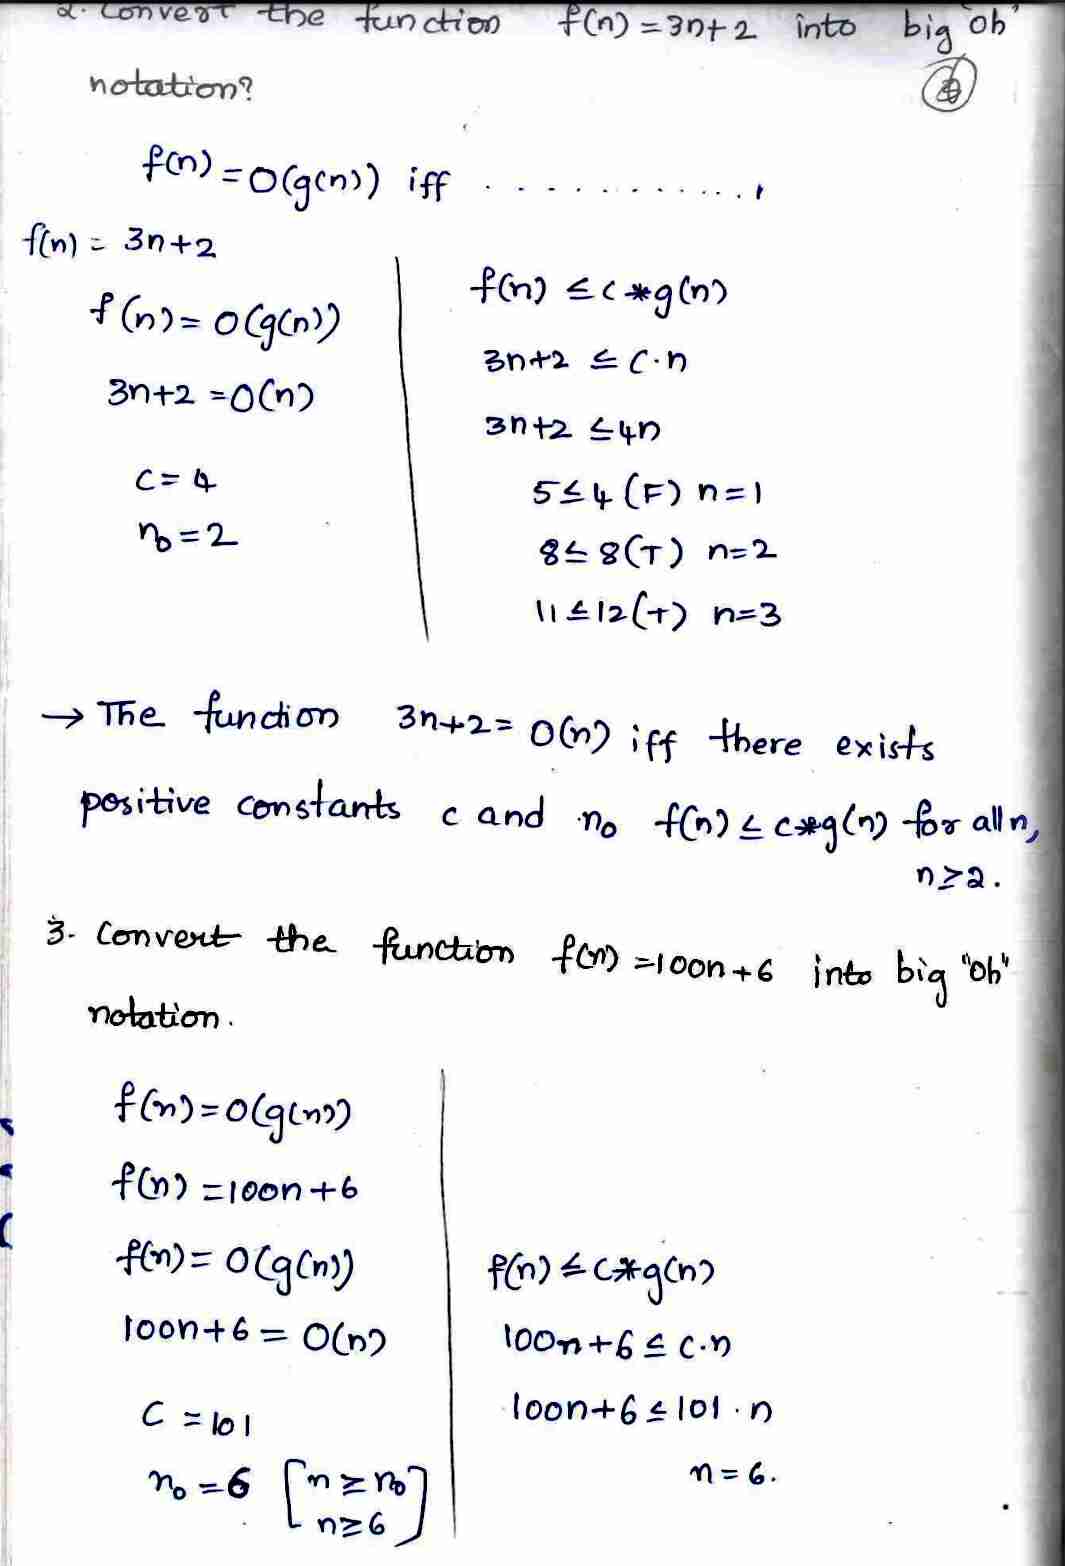 2. Convert the function f(n) = 3n+2 into big "oh"
notation?
f(n) = O(g(n)) iff . . . . . . . . . . . . ,
f(n) = 3n+2
f(n) = O(g(n))
3n+2 = O(n)
c = 4
n₀ = 2
f(n) ≤ c*g(n)
3n+2 ≤ c·n
3n+2 ≤ 4n
5 ≤ 4 (F) n=1
8 ≤ 8 (T) n=2
11 ≤ 12 (T) n=3
→ The function 3n+2 = O(n) iff there exists
positive constants c and n₀ f(n) ≤ c*g(n) for all n,
n ≥ 2.
3. Convert the function f(n) = 100n+6 into big "oh"
notation.
f(n) = O(g(n))
f(n) = 100n+6
f(n) = O(g(n))
100n+6 = O(n)
C = 101
n₀ = 6 [n ≥ n₀
n ≥ 6]
f(n) ≤ c*g(n)
100n+6 ≤ c·n
100n+6 ≤ 101·n
n = 6.